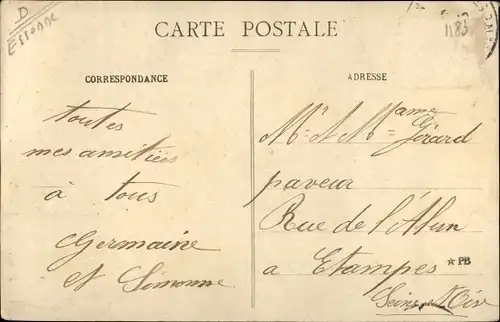 D
Essonne
1183
CARTE POSTALE
CORRESPONDANCE
toutes
mes amitiées
à tous
Germaine
et Simonne
ADRESSE
Mr et Mme Girard
paveur
Rue de l'
a Etampes
*PB
Seine & Oise